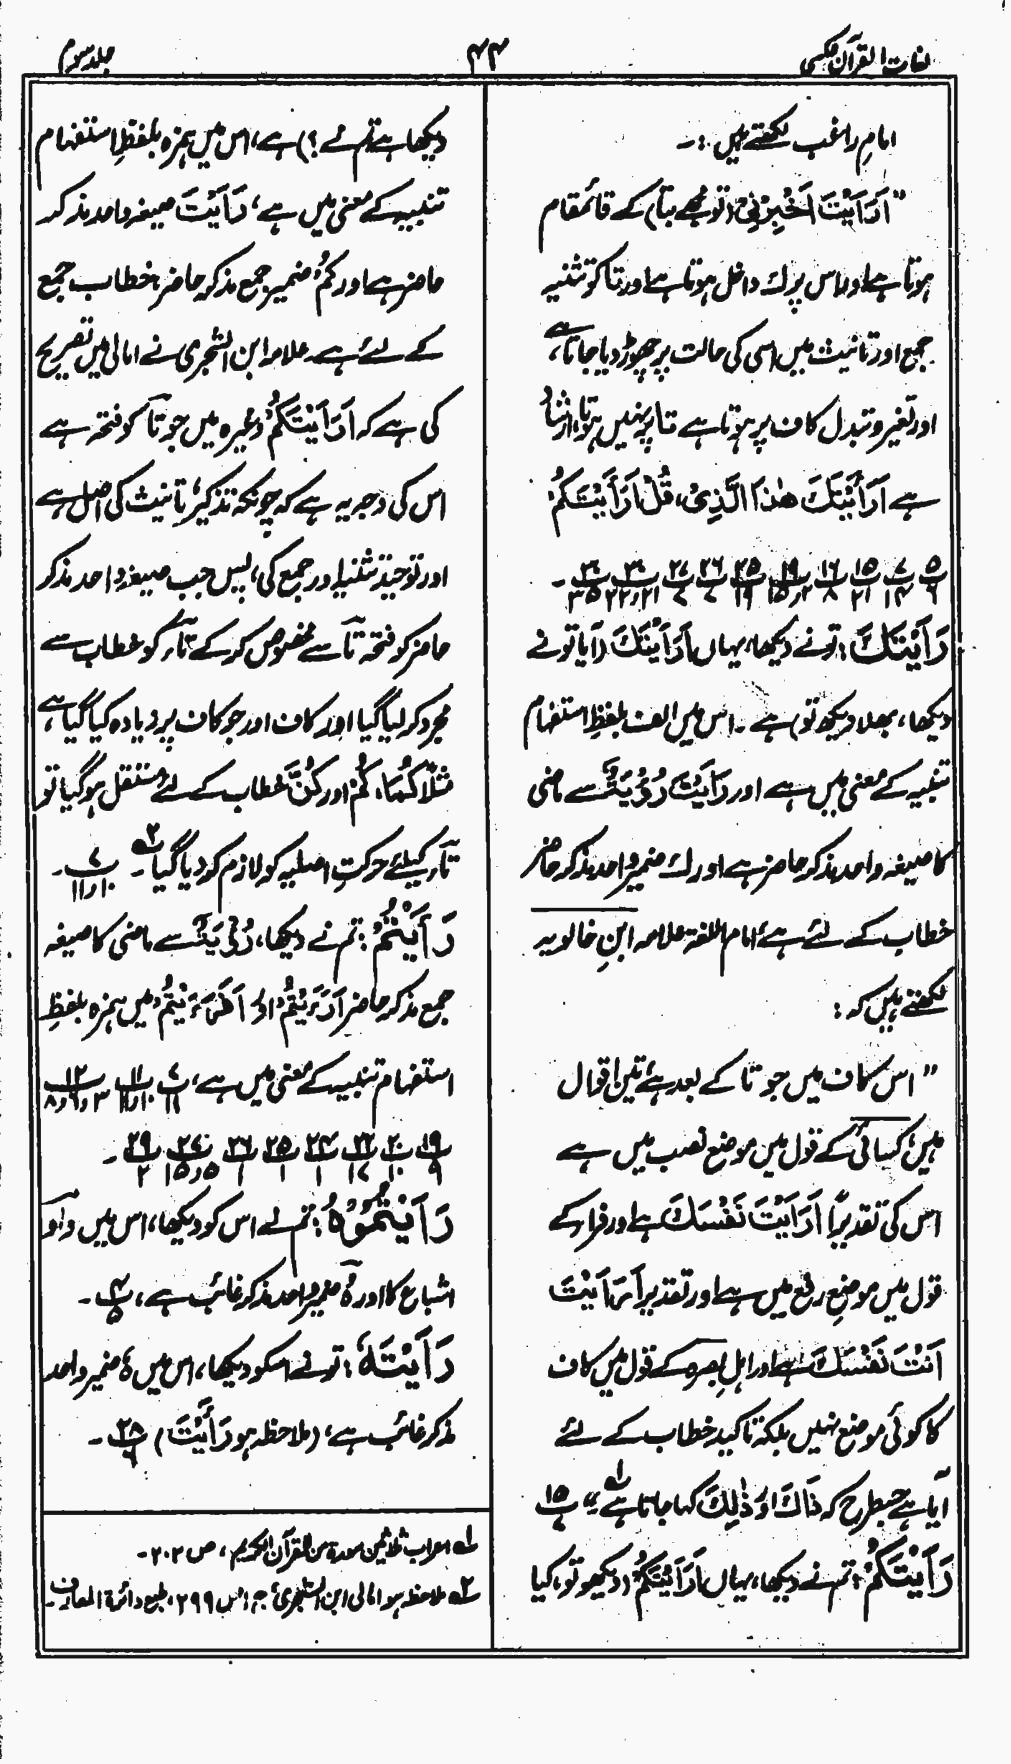 لغات القرآن عکسی
۴۴
جلد سوم
امام راغب لکھتے ہیں :۔
"اَرَاَیْتَ اَخْبِرْنِیْ (تو مجھے بتا) کے قائمقام
ہوتا ہے اور اس پر ك داخل ہوتا ہے اور تا کو تثنیہ
جمع اور تانیث میں اسی کی حالت پر چھوڑ دیا جاتا ہے،
اور تغیر و تبدل کاف پر ہوتا ہے تا پر نہیں ہوتا، ارشاد
ہے اَرَاَیْتَكَ هٰذَا الَّذِیْ، قُلْ اَرَاَیْتَكُمْ
رَاَیْتَكَ: تونے دیکھا، یہاں اَرَاَیْتَكَ (آیا تونے
دیکھا، بھلا دیکھ تو) ہے۔ اس میں الف بلفظِ استفہام
تنبیہ کے معنی میں ہے اور رَاَیْتَ رُؤْیَۃٌ سے ماضی
کا صیغہ واحد مذکر حاضر ہے اور ك ضمیر واحد مذکر حاضر
خطاب کے لئے ہے، امام اللغۃ علامہ ابن خالویہ
لکھتے ہیں کہ :
"اس کاف میں جو تا کے بعد ہے تین اقوال
ہیں، کسائی کے قول میں موضع نصب میں ہے
اس کی تقدیر اَرَاَیْتَ نَفْسَكَ ہے اور فراء کے
قول میں موضع رفع میں ہے اور تقدیر اَرَاَیْتَ
اَنْتَ نَفْسَكَ ہے اور اہل بصرہ کے قول میں کاف
کا کوئی موضع نہیں بلکہ تاکید خطاب کے لئے
آیا ہے جسطرح کہ ذَاكَ اور ذٰلِكَ کہا جاتا ہے" ۱؎ پ ۱۵
رَاَیْتَكُمْ: تم نے دیکھا، یہاں اَرَاَیْتَكُمْ (دیکھو تو، کیا
دیکھا ہے تم نے ؟) ہے، اس میں ہمزہ بلفظِ استفہام
تنبیہ کے معنی میں ہے، رَاَیْتَ صیغہ واحد مذکر
حاضر ہے اور كُمْ ضمیر جمع مذکر حاضر، خطاب جمع
کے لئے ہے۔ علامہ ابن الشجری نے امالی میں تصریح
کی ہے کہ اَرَاَیْتَكُمْ وغیرہ میں جو تا کو فتحہ ہے
اس کی وجہ یہ ہے کہ چونکہ تذکیر، تانیث کی اصل ہے
اور توحید تثنیہ اور جمع کی، پس جب صیغہ واحد مذکر
حاضر کو فتحہ تا سے مخصوص کر کے تاء کو خطاب سے
مجرد کر لیا گیا اور کاف اور جو کاف پر زیادہ کیا گیا ہے،
مثلاً كُمَا، كُمْ اور كُنَّ خطاب کے لئے مستقل ہو گیا تو
تاء کیلئے حرکتِ اصلیہ کو لازم کر دیا گیا۔ ۲؎ پ ۷ ۱۰ر۱۱۔
رَأَیْتُمْ: تم نے دیکھا، رُؤْیَۃٌ سے ماضی کا صیغہ
جمع مذکر حاضر میں ہمزہ بلفظِ
استفہام تنبیہ کے معنی میں ہے،
رَاَیْتُمُوْهُ: تم نے اس کو دیکھا، اس میں واو
اشباع کا اور هُ ضمیر واحد مذکر غائب ہے، پ ۴ ۵۔
رَاَیْتَهٗ: تونے اسکو دیکھا، اس میں هٗ ضمیر واحد
مذکر غائب ہے، (ملاحظہ ہو رَاَیْتَ) پ ۲۸ ۶۔
۱؎ اعراب ثلاثین سورۃ من القرآن الکریم، ص ۲۰۲۔
۲؎ ملاحظہ ہو امالی ابن الشجری، ج ۱، ص ۲۹۹، طبع دائرۃ المعارف۔